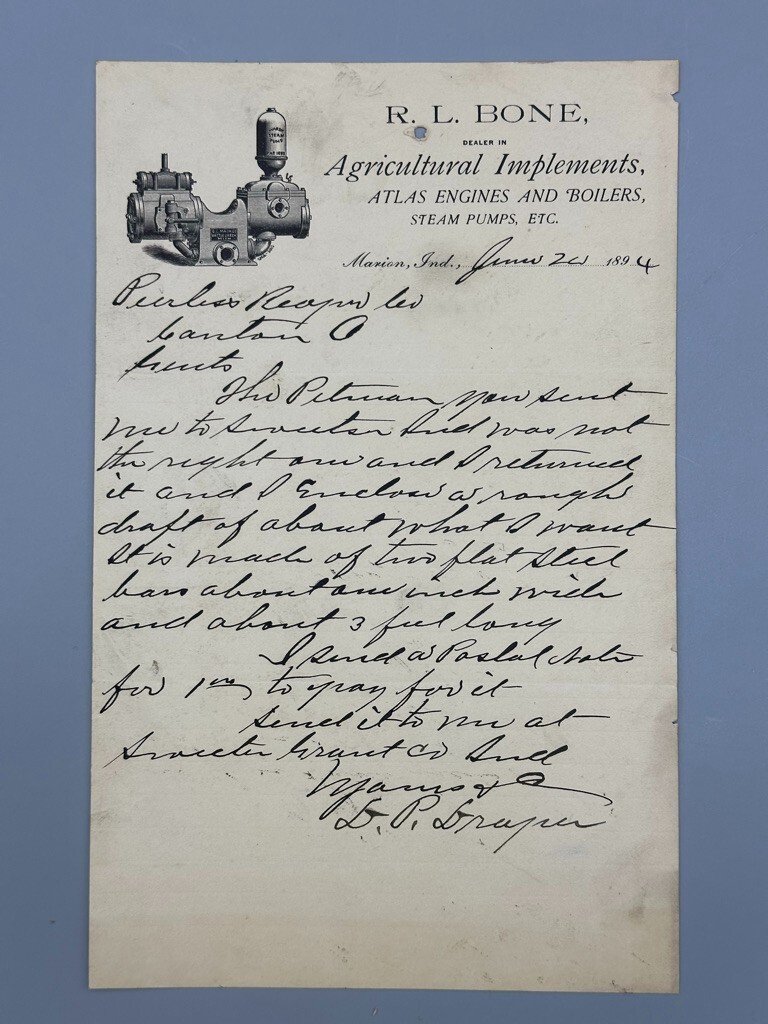 R. L. BONE,
DEALER IN
Agricultural Implements,
ATLAS ENGINES AND BOILERS,
STEAM PUMPS, ETC.
Marion, Ind., June 1894
Peerless Reaper Co
Canton O
Gents
The Pitman you sent
me to Sweetser Ind was not
the right one and I returned
it and I Enclose a rough
draft of about what I want
It is made of two flat steel
bars about one inch wide
and about 3 feet long
I send a Postal Note
for 1 to pay for it
send it to me at
Sweetser Grant Co Ind
Yours &
P. Draper